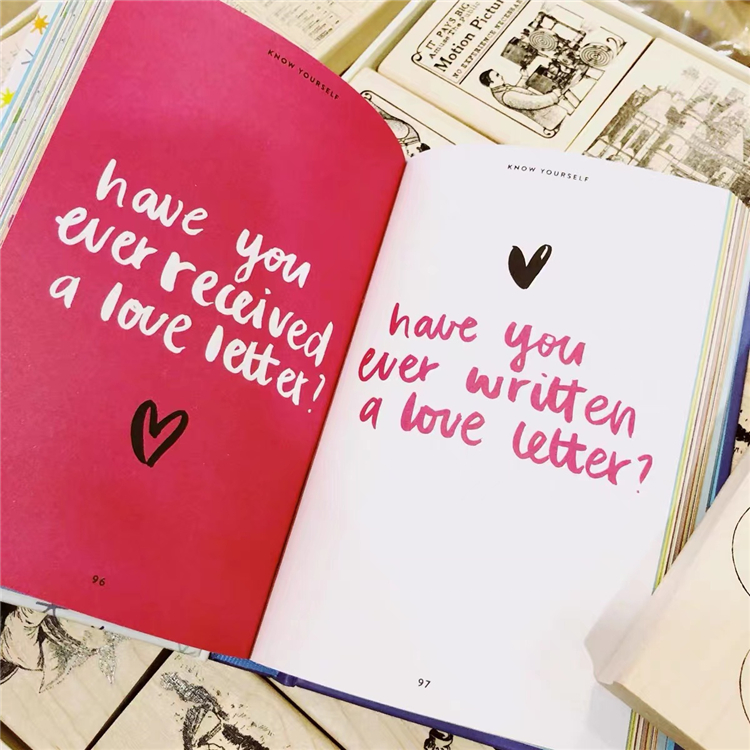 KNOW YOURSELF
have you
ever received
a love letter?
96
KNOW YOURSELF
have you
ever written
a love letter?
97
IT PAYS BIG
Motion Pictur
NO EXPERIENCE